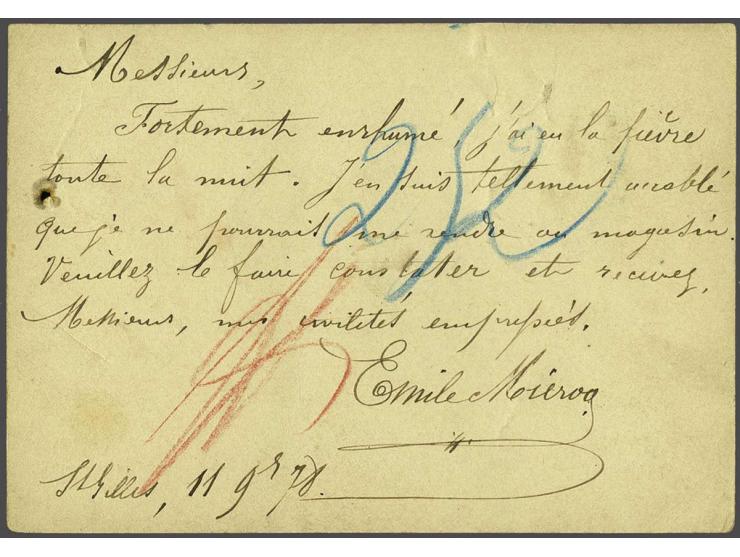 Messieurs,
Fortement enrhumé, j'ai eu la fièvre
toute la nuit. J'en suis tellement accablé
que je ne pourrait me rendre au magasin.
Veuillez le faire constater et recevez,
Messieurs, mes civilités empressées.
Emile
St Gilles, 11 9r 78.